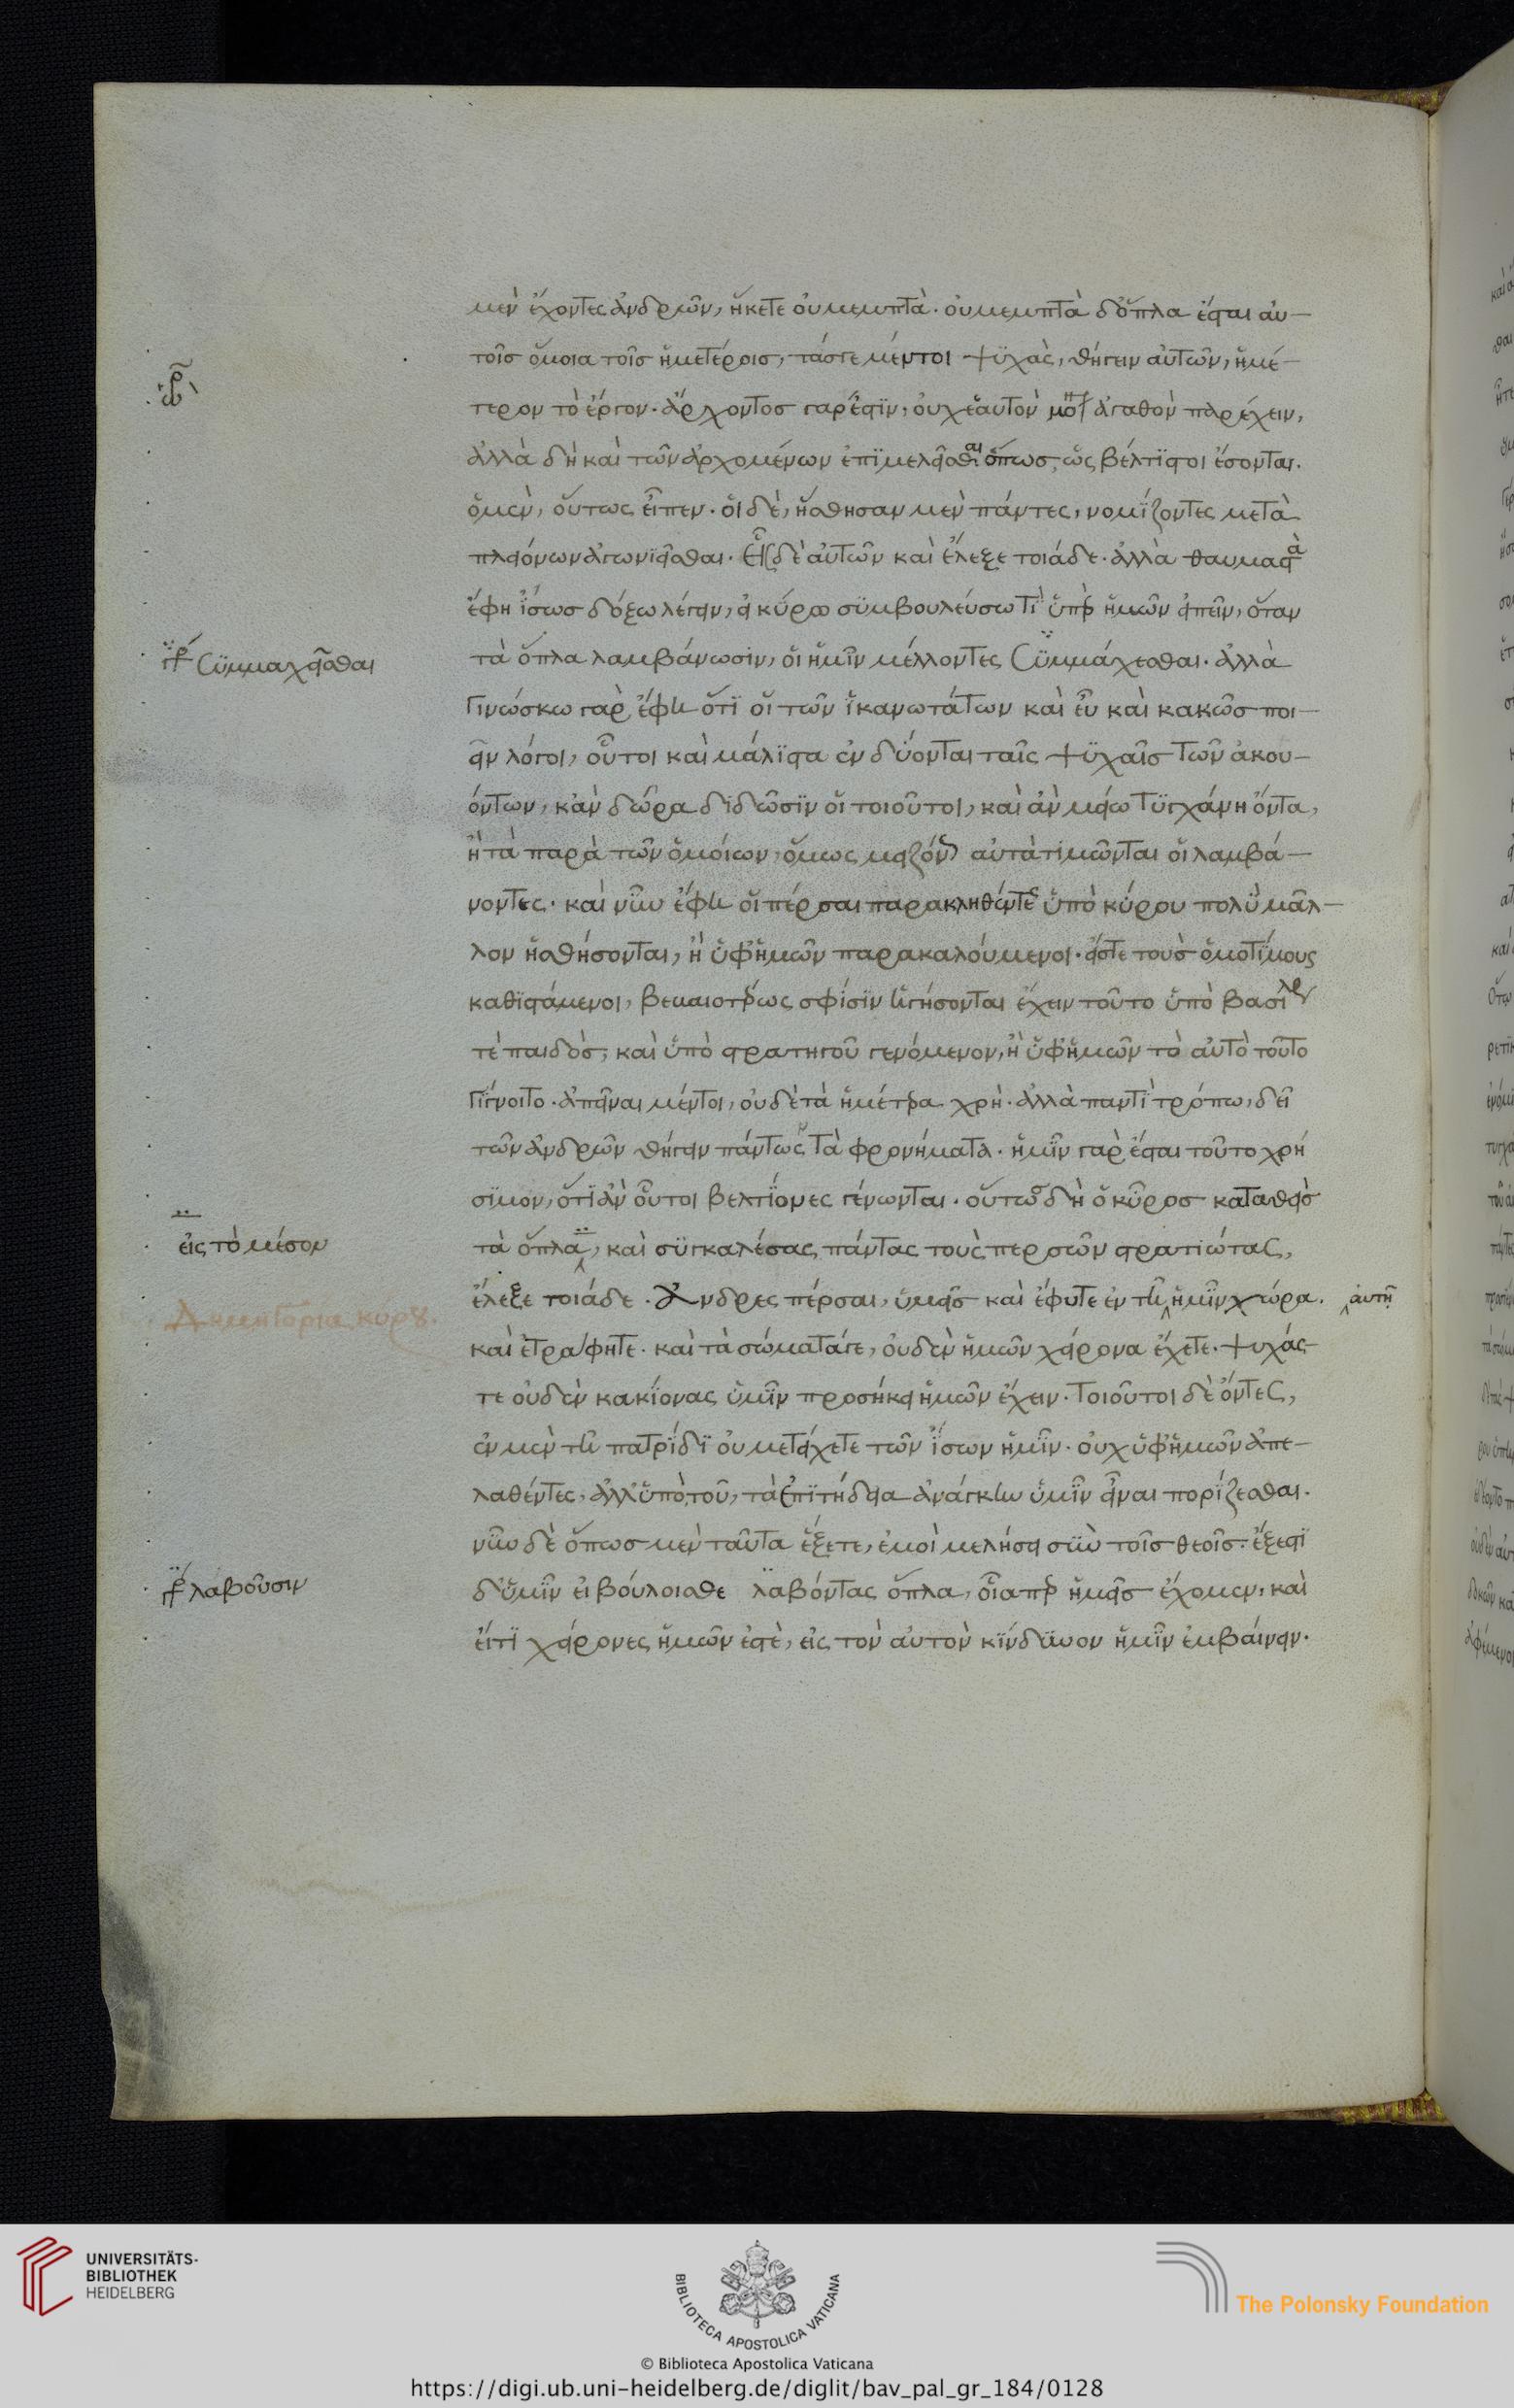 μὲν ἔχοντες ἀνδρῶν, ἥκετε οὐ μεμπτὰ. οὐ μεμπτὰ δ' ὅπλα ἔσται αὐ-
τοῖς ὅμοια τοῖς ἡμετέροις, τάς γε μέντοι ψϋχὰς, θήγειν αὐτῶν, ἡμέ-
τερον τὸ ἔργον. ἄρχοντος γάρ ἐστϊν, οὐχ ἑαυτὸν μόνον ἀγαθὸν παρέχειν,
ἀλλὰ δὴ καὶ τῶν ἀρχομένων ἐπϊμελεῖσθαι ὅπως, ὡς βέλτϊστοι ἔσονται.
ὁ μὲν, οὕτως εἶπεν. οἱ δὲ, ἥσθησαν μὲν πάντες, νομΐζοντες μετὰ
πλειόνων ἀγωνϊεῖσθαι. Εἷς δὲ αὐτῶν καὶ ἔλεξε τοιάδε. ἀλλὰ θαυμαστὰ
ἔφη ἴσως δόξω λέγειν, εἰ κύρω συμβουλεύσω τϊ ὑπὲρ ἡμῶν εἰπεῖν, ὅταν
γρ Συμμαχεῖσθαι
τὰ ὅπλα λαμβάνωσϊν, οἱ ἡμῖν μέλλοντες Συμμάχεσθαι. ἀλλὰ
Γινώσκω γὰρ ἔφη ὅτϊ οἱ τῶν ἱκανωτάτων καὶ εὖ καὶ κακῶς ποι-
εῖν λόγοι, οὗτοι καὶ μάλϊστα ἐν δύονται ταῖς ψϋχαῖς τῶν ἀκου-
όντων, κἂν δῶρα δϊδῶσϊν οἱ τοιοῦτοι, καὶ ἂν μείω τυγχάνη ὄντα,
ἢ τὰ παρὰ τῶν ὁμοίων, ὅμως μείζόν αὐτὰ τιμῶνται οἱ λαμβά-
νοντες. καὶ νῦν ἔφη οἱ πέρσαι παρακληθέντες ὑπὸ κύρου πολὺ μᾶλ-
λον ἡσθήσονται, ἢ ὑφ' ἡμῶν παρακαλούμενοι. εἴς τε τοὺς ὁμοτίμους
καθϊστάμενοι, βεβαιοτέρως σφίσϊν ἡγήσονται ἔχειν τοῦτο ὑπὸ βασιλέως
τὲ παιδὸς, καὶ ὑπὸ στρατηγοῦ γενόμενον, ἢ ὑφ' ἡμῶν τὸ αὐτὸ τοῦτο
Γίγνοιτο. ἀπεῖναι μέντοι, οὐδὲ τὰ ἡμέτερα χρὴ. ἀλλὰ παντὶ τρόπω, δεῖ
τῶν ἀνδρῶν θήγειν πάντως τὰ φρονήματα. ἡμῖν γὰρ ἔσται τοῦτο χρή
σϊμον, ὅτϊ ἂν οὗτοι βελτΐονες γένωνται. οὕτω δὴ ὁ κῦρος καταθεὶς
εἰς τὸ μέσον
τὰ ὅπλα, καὶ συγκαλέσας πάντας τοὺς περσῶν στρατιώτας,
Δημηγορία κύρου.
ἔλεξε τοιάδε. Ἄνδρες πέρσαι, ὑμεῖς καὶ ἔφυτε ἐν τῆ ἡμῖν χώρα. αὐτῆ
καὶ ἐτράφητε. καὶ τὰ σώματά γε, οὐδὲν ἡμῶν χείρονα ἔχετε. ψυχάς
τε οὐδὲν κακΐονας ὑμῖν προσήκει ἡμῶν ἔχειν. Τοιοῦτοι δὲ ὄντες,
ἐν μὲν τῆ πατρΐδϊ οὐ μετείχετε τῶν ἴσων ἡμῖν. οὐχ ὑφ' ἡμῶν ἀπε-
λαθέντες, ἀλλ' ὑπὸ τοῦ, τὰ ἐπϊτήδεια ἀνάγκην ὑμῖν εἶναι πορΐζεσθαι.
νῦν δὲ ὅπως μὲν ταῦτα ἕξετε, ἐμοὶ μελήσει σὺν τοῖς θεοῖς. ἔξεστϊ
γρ λαβοῦσιν
δ' ὑμῖν εἰ βούλοισθε λαβόντας ὅπλα, οἷά περ ἡμεῖς ἔχομεν, καὶ
εἴ τϊ χείρονες ἡμῶν ἐστὲ, εἰς τὸν αὐτὸν κΐνδυνον ἡμῖν ἐμβαίνειν.
UNIVERSITÄTS-
BIBLIOTHEK
HEIDELBERG
BIBLIOTECA APOSTOLICA VATICANA
The Polonsky Foundation
© Biblioteca Apostolica Vaticana
https://digi.ub.uni-heidelberg.de/diglit/bav_pal_gr_184/0128